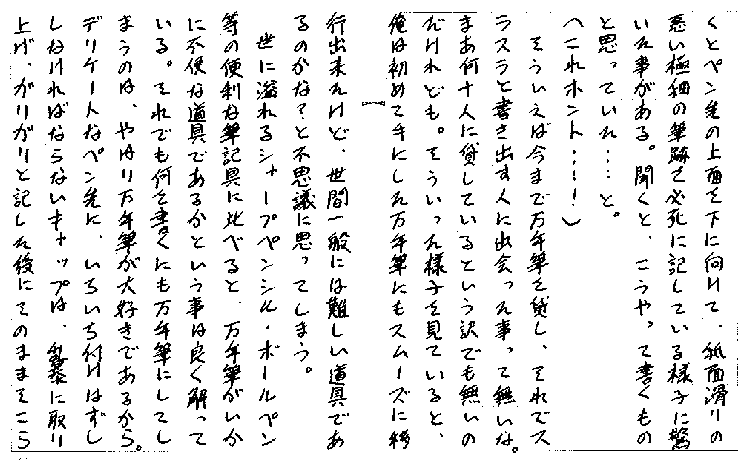 くとペン先の上面を下に向けて、紙面滑りの
悪い極細の筆跡で必死に記している様子に驚
いた事がある。聞くと、こうやって書くもの
と思っていた……と。
（これホント……！）
そういえば今まで万年筆を貸し、それでス
ラスラと書き出す人に出会った事って無いな。
まあ何十人に貸しているという訳でも無いの
だけれども。そういった様子を見ていると、
俺は初めて手にした万年筆にもスムーズに移
行出来たけど、世間一般には難しい道具であ
るのかな？と不思議に思ってしまう。
世に溢れるシャープペンシル・ボールペン
等の便利な筆記具に比べると、万年筆がいか
に不便な道具であるかという事は良く解って
いる。それでも何を書くにも万年筆にしてし
まうのは、やはり万年筆が大好きであるから。
デリケートなペン先に、いちいち付けはずし
しなければならないキャップは、乱暴に取り
上げ、ガリガリと記した後にそのままそこら